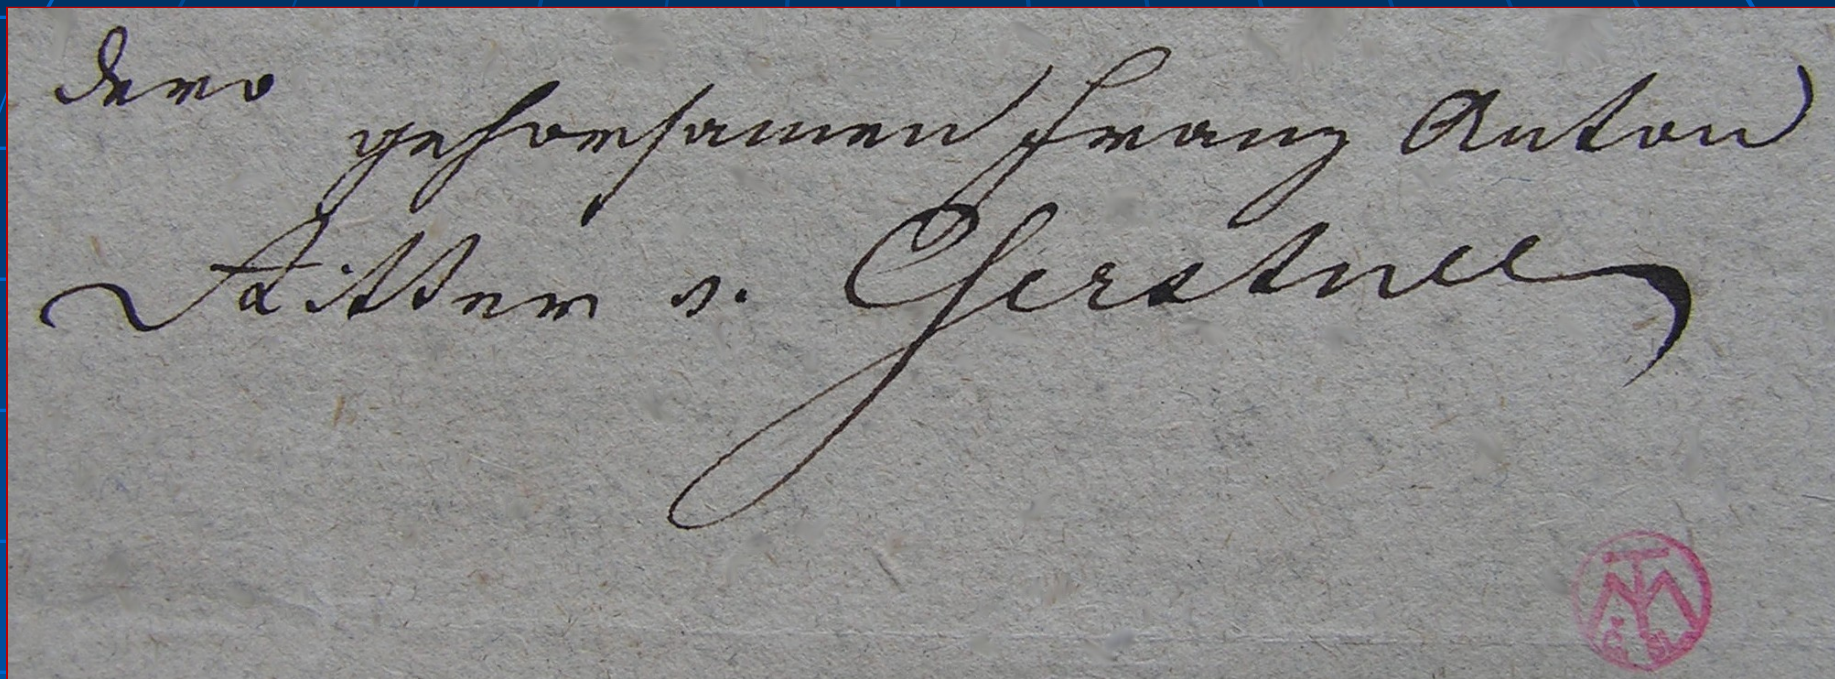 Dero
gehorsamen Franz Anton
Ritter v. Gerstner
TM
Č. SL.